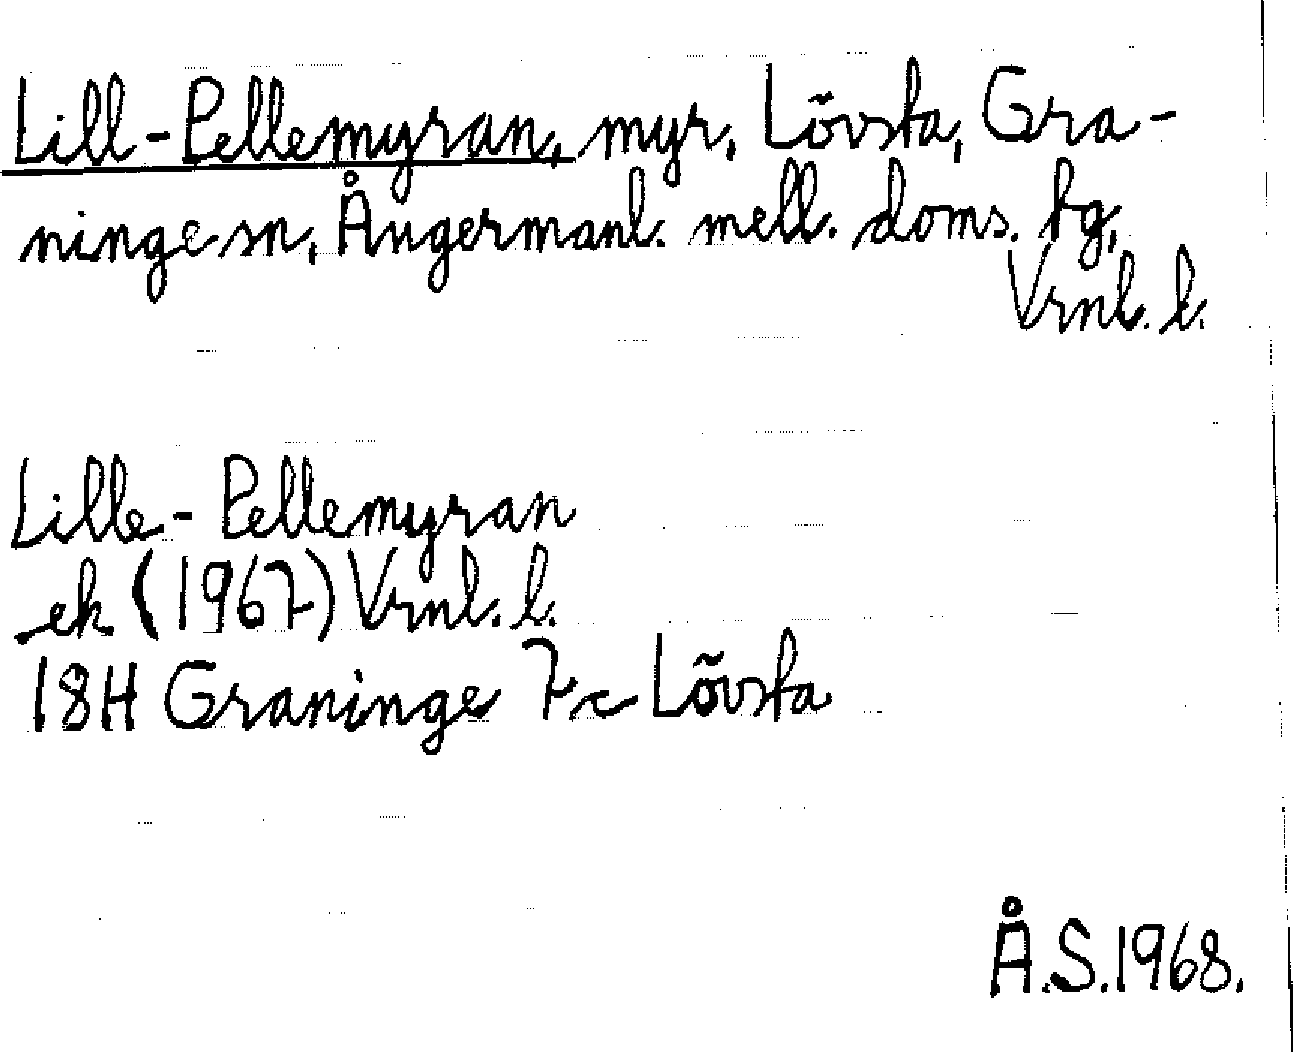 Lill-Pellemyran, myr, Lövsta, Gra-
ninge sn, Ångermanl. mell. doms. fg,
Vrnl. l.
Lille-Pellemyran
ek (1967) Vrnl. l.
18H Graninge 7c Lövsta
Å.S. 1968.